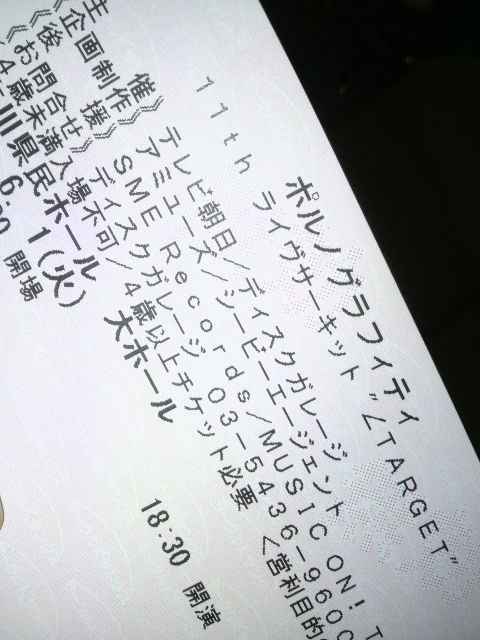 ポルノグラフィティ
11th ライヴサーキット "∠TARGET"
催》 テレビ朝日/ディスクガレージ
企画制作》 アミューズ/シービーエージェント
後 援》 SME Records/MUSIC ON! T
《お問合せ》 ディスクガレージ 03-5436-960
《4歳未満入場不可/4歳以上チケット必要 <営利目的
川県民ホール 大ホール
1(火)
開場 18:30 開演